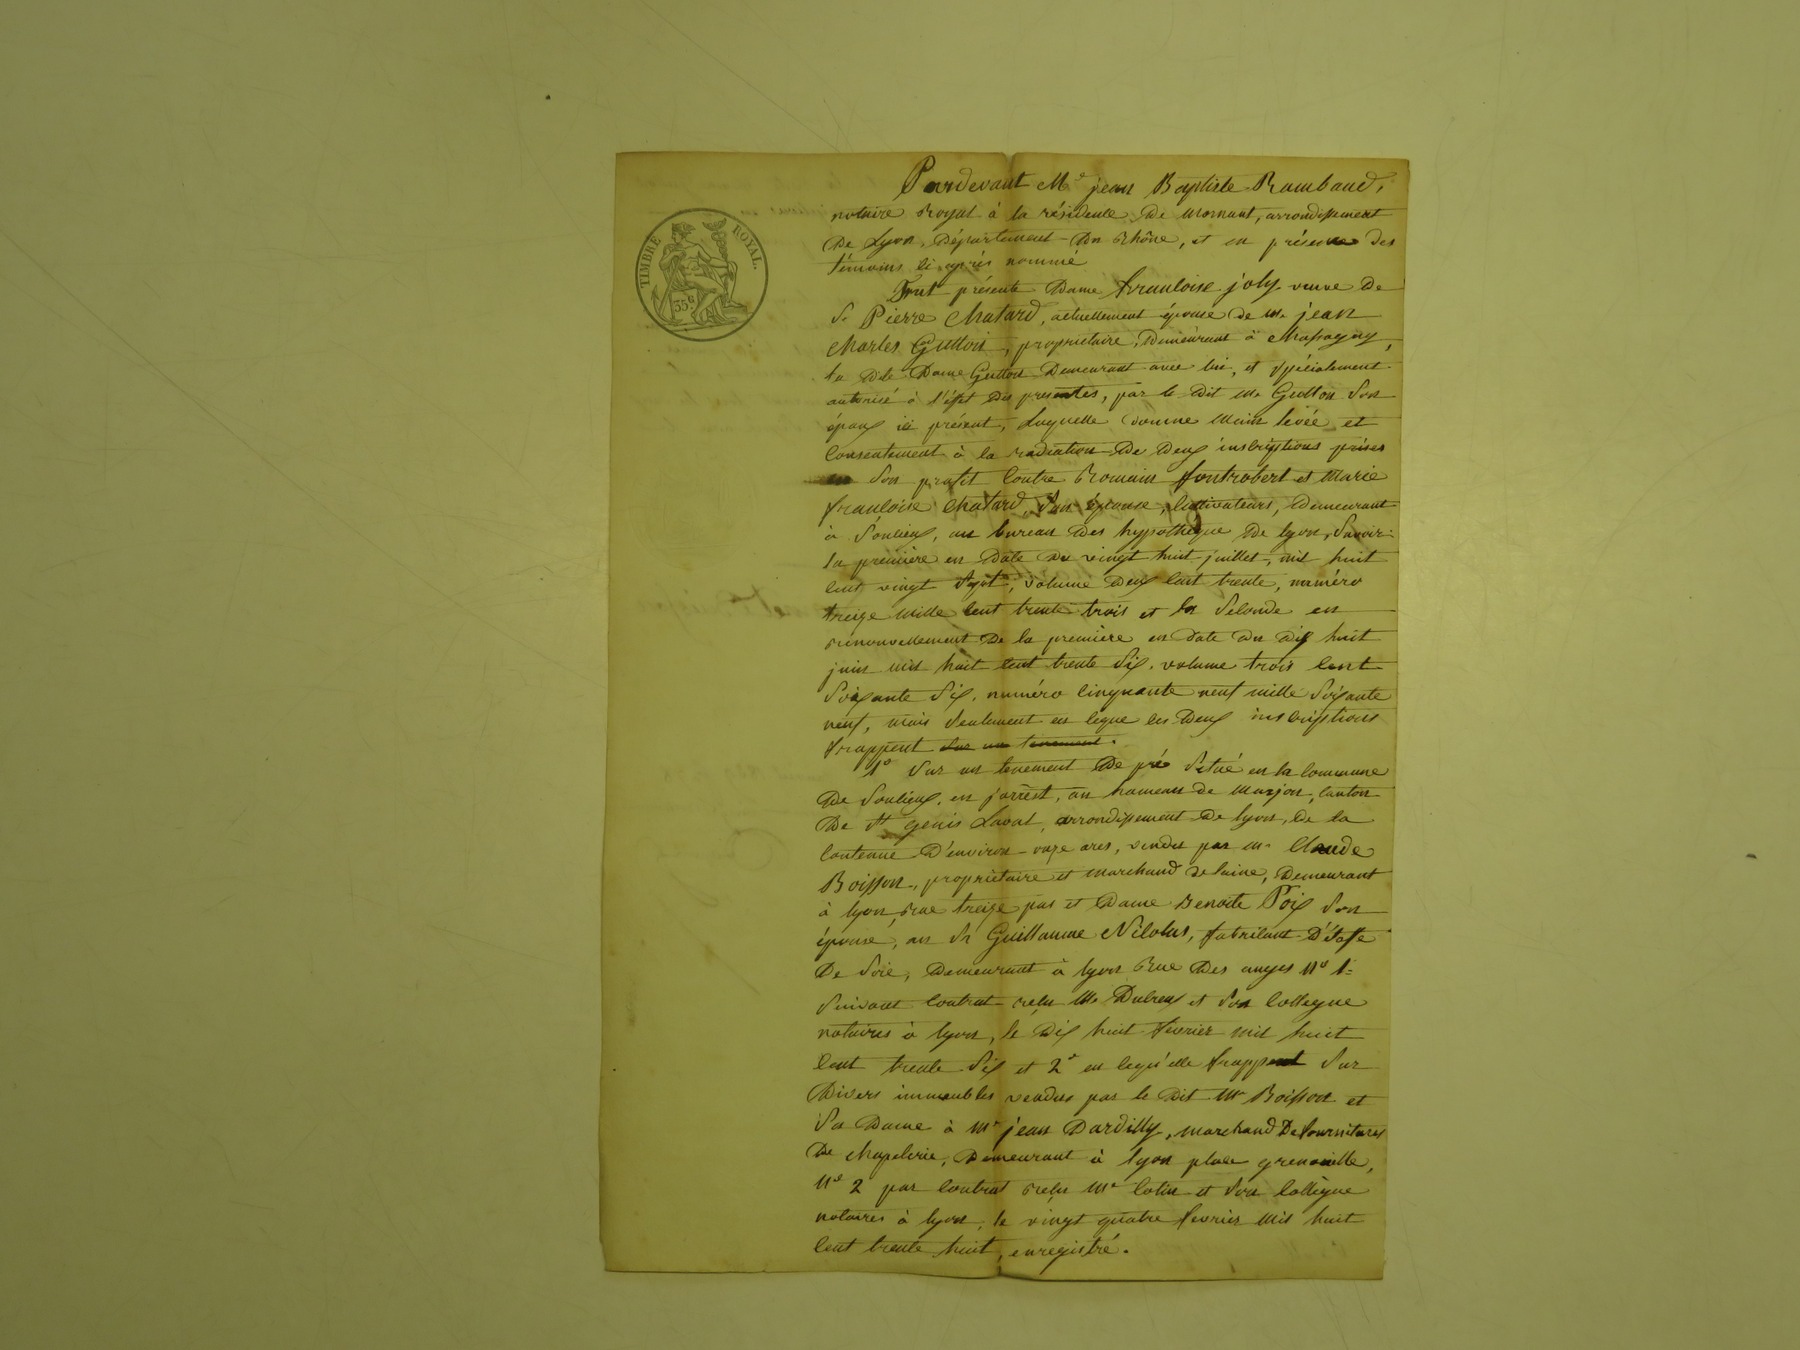 TIMBRE ROYAL.
35 c
Pardevant Me jean Baptiste Rambaud,
notaire Royal à la résidence de mornant, arrondissement
De Lyon, Département Du Rhône, et en présence des
témoins ci après nommé
Fut présente Dame francoise joly veuve De
S. Pierre Chatard, actuellement épouse de M. jean
Charles Gutton, propriétaire, Demeurant à Chassagny,
la dite Dame Gutton Demeurant avec lui, et spécialement
autorisé à l'éfet Des presentes, par le Dit M. Gutton Son
époux ici présent, Laquelle donne Main levée et
Consentement à la radiation De Deux inscriptions prises
Son profit Contre Romain fontrobert et Marie
francoise Chatard, Son épouse, Cultivateurs, Demeurant
à Soucieu, au bureau Des hypothèque De lyon, Savoir:
la première en Date Du vingt huit juillet, mil huit
Cent vingt Sept, volume Deux Cent trente, numéro
treize mille Cent trente trois et la Seconde en
renouvellement De la première en Date Du Dix huit
juin mil huit Cent trente Six, volume trois Cent
Soixante Six, numéro Cinquante neuf mille Soixante
neuf, mais Seulement en ceque ces Deux inscriptions
frappent Sur un tenement.
1° Sur un tenement De pré Situé en la Commune
De Soucieux, en jarrest, au hameau de Marjon, Canton
De St genis Laval, arrondissement De lyon, De la
Contenue D'environ onze ares, vendu par M. Claude
Boisson, propriétaire et marchand de laine, Demeurant
à lyon, Rue treize pas et Dame Benoite Poix Son
épouse, au Sr Guillaume Nicolas, fabricant D'étoffe
De Soie, Demeurant à lyon Rue Des anges N° 1
Suivant Contrat reçu Me Dubreux et Son Collegue
notaires à lyon, le Dix huit fevrier mil huit
Cent trente Six et 2° en cequ'elle frappent Sur
Divers immeubles vendus par le Dit Mr Boisson et
Sa Dame à Mr jean Dardilly, marchand De fournitures
De chapelerie, Demeurant à lyon place grenouille,
N° 2 par Contrat reçu Me Cotin et Son Collègue
notaires à lyon, le vingt quatre fevrier Mil huit
Cent trente huit, enregistré.